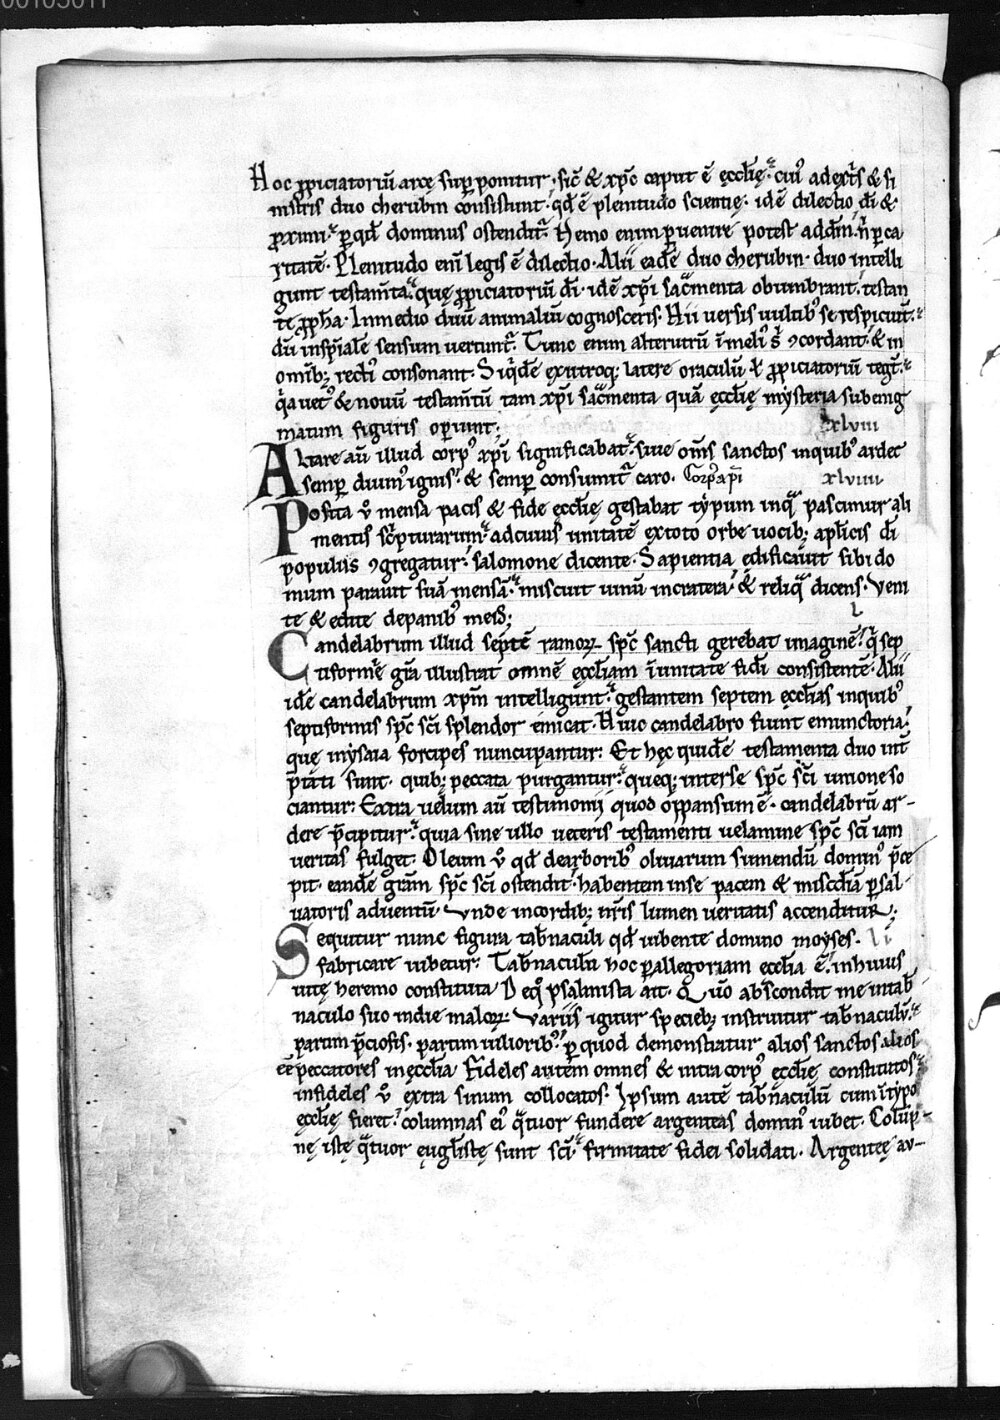 Hoc ꝓpiciatoriū arcę suꝑponitur, sic̄ & xp̄c caput ē ęccłię. cui᾽ ad ext̄s & si
nistris duo cherubin consistunt. qd̄ ē plenitudo scientię. idē dilectio dī &
ꝓximi. ꝑ qd̄ dominus ostendit. Nemo enim ꝑuenire potest ad dm̄. n̄ ꝑ ca
ritatē. Plenitudo enī legis ē dilectio. Alii eadē duo cherubin. duo intelli
gunt testam̄ta. quę ꝓpiciatoriū dī. idē xp̄i sac̄menta obumbrant. testan
te ꝓpħa. In medio duū animaliū cognosceris. Hii versis vultib᾽ se respiciunt.
dū in sp̄iałe sensum vertunt̄. Tunc enim alterutrū in meli᾽ s̄ ꝯcordant. & in
omīb; recti᾽ consonant. Siq̄dē ex utroq; latere oraculū ł ꝓpiciatoriū tegt̄.
q̄a uet᾽ & nouū testam̄tū tam xp̄i sac̄menta quā ęccłię mysteria sub enig
matum figuris oꝑiunt;
xlviii
Altare aū illud corp᾽ xp̄i significabat. siue om̄s sanctos in quib᾽ ardet
semꝑ diuin᾽ ignis. & semꝑ consumit᷑ caro. Corp᾽ xp̄i
xlviiii
Posita v̄ mensa pacis & fide ęccłię gestabat typum in q̄ pascimur ali
mentis sc̄pturarum. ad cuius unitatē ex toto orbe uocib; ap̄licis dī
populus ꝯgregatur. salomone dicente. Sapientia edificauit sibi do
mum parauit suā mensā. miscuit uinū in cratera. & reliq̄ dicens. Veni
te & edite de panib᾽ meis;
l
Candelabrum illud septē ramoꝝ sp̄c sancti gerebat imaginē. q̄ sep
tiformē grā illustrat omnē ęccłiam in unitate fidī consistentē. Alii
idē candelabrum xp̄m intelligunt. gestantem septem ęccłias in quib᾽
septiformis sp̄c sc̄i splendor emicat. Huic candelabro fiunt emunctoria.
quę in ysaia forcipes nuncupantur. Et hęc quidē testamenta duo int̄
p̄tati sunt. quib; peccata purgantur. queq; inter se sp̄c sc̄i unione so
ciantur. Extra uelum aū testimonii quod oppansum ē. candelabrū ar-
dere p̄cipitur. quia sine ullo ueteris testamenti uelamine sp̄c sc̄i iam
veritas fulget. Oleum v̄ qd̄ de arborib᾽ oliuarum sumendū domin᾽ p̄ce
pit. eandē grām sp̄c sc̄i ostendit. habentem in se pacem & miscd̄iā ꝑ sal-
uatoris aduentū. Unde in cordib; nr̄is lumen ueritatis accenditur;
Sequitur nunc figura tab̄naculi qd̄ iubente domino moyses. li
fabricare iubetur. Tab̄naculū hoc ꝑ allegoriam ęccłia ē in huius
uitę heremo constituta. De q᾽ psalmista ait. Quō abscondit me in tab̄
naculo suo in die maloꝝ. Variis igitur specieb; instruitur tab̄naculū.
partim p̄ciosis. partim uilliorib᾽. ꝑ quod demonstratur alios sanctos alios
eē peccatores in ęccłia. Fideles autem omnes & intra corp᾽ ęccłię constitutos
infideles v̄ extra sinum collocatos. Ipsum autē tab̄naculū cum in typo
ęccłię fieret. columnas ei᾽ q̄tuor fundere argenteas domin᾽ iubet. Colūp-
nę istę q̄tuor euglīstę sunt sc̄i. firmitate fidei solidati. Argenteę au-